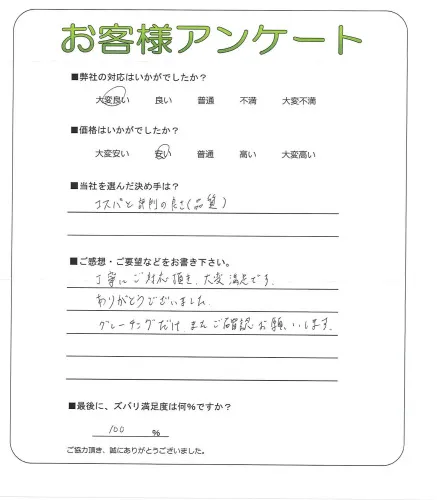 お客様アンケート
■弊社の対応はいかがでしたか？
大変良い 良い 普通 不満 大変不満
■価格はいかがでしたか？
大変安い 安い 普通 高い 大変高い
■当社を選んだ決め手は？
コスパと 評判の良さ(品質)
■ご感想・ご要望などをお書き下さい。
丁寧にご対応頂き、大変満足です。
ありがとうございました。
グレーチングだけ、またご確認お願いします。
■最後に、ズバリ満足度は何％ですか？
100 ％
ご協力頂き、誠にありがとうございました。